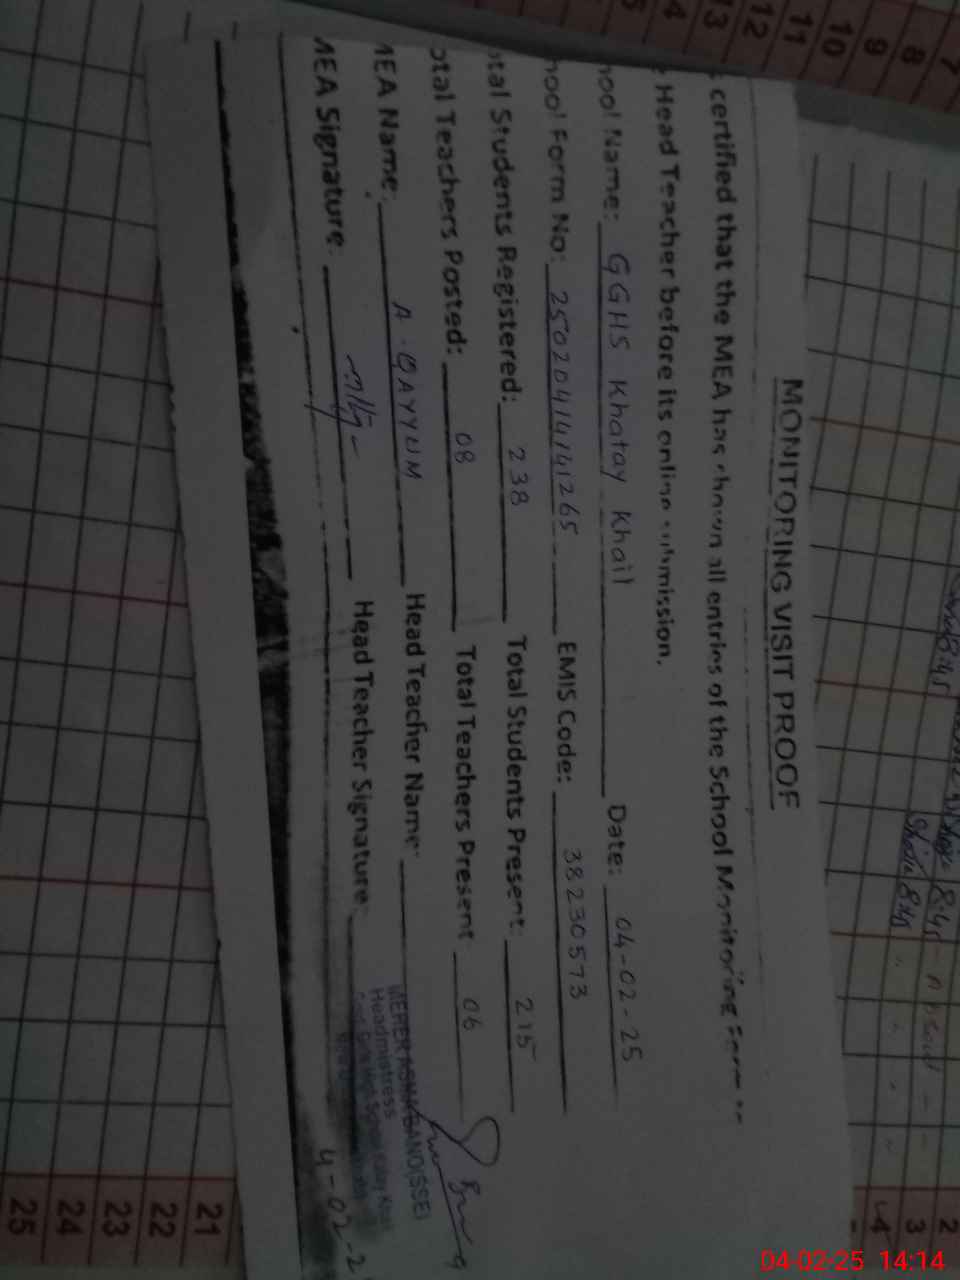 MONITORING VISIT PROOF
certified that the MEA has shown all entries of the School Monitoring Form to
Head Teacher before its online submission.
hool Name: GGHS Khatay Khail Date: 04-02-25
hool Form No: 25020414141265 EMIS Code: 38230573
otal Students Registered: 238 Total Students Present: 215
otal Teachers Posted: 08 Total Teachers Present 06
MEA Name: A. QAYYUM Head Teacher Name:
MEA Signature: Head Teacher Signature:
BANO(SSE)
Headmistress
4-02-2
5 4 13 12 11 10 9 8 7
25 24 23 22 21
4 3 2
8:45
8:45
8:45
04-02-25 14:14